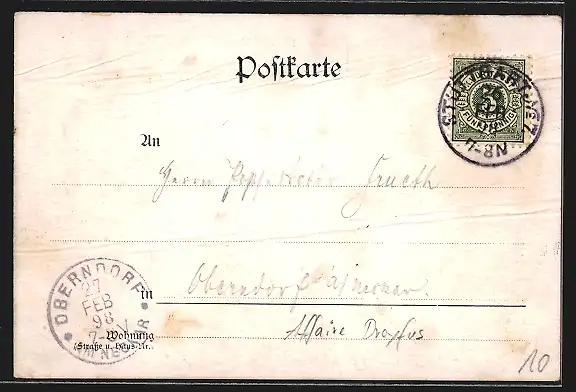 Postkarte
5
FÜNF PFENNIG
STUTTGART
7-8N
An
Herrn
OBERNDORF
27
FEB
98
AM NECKAR
in
Oberndorf a/Neckar
Wohnung
(Straße u. Haus-Nr.)
Affaire Dreyfus
10